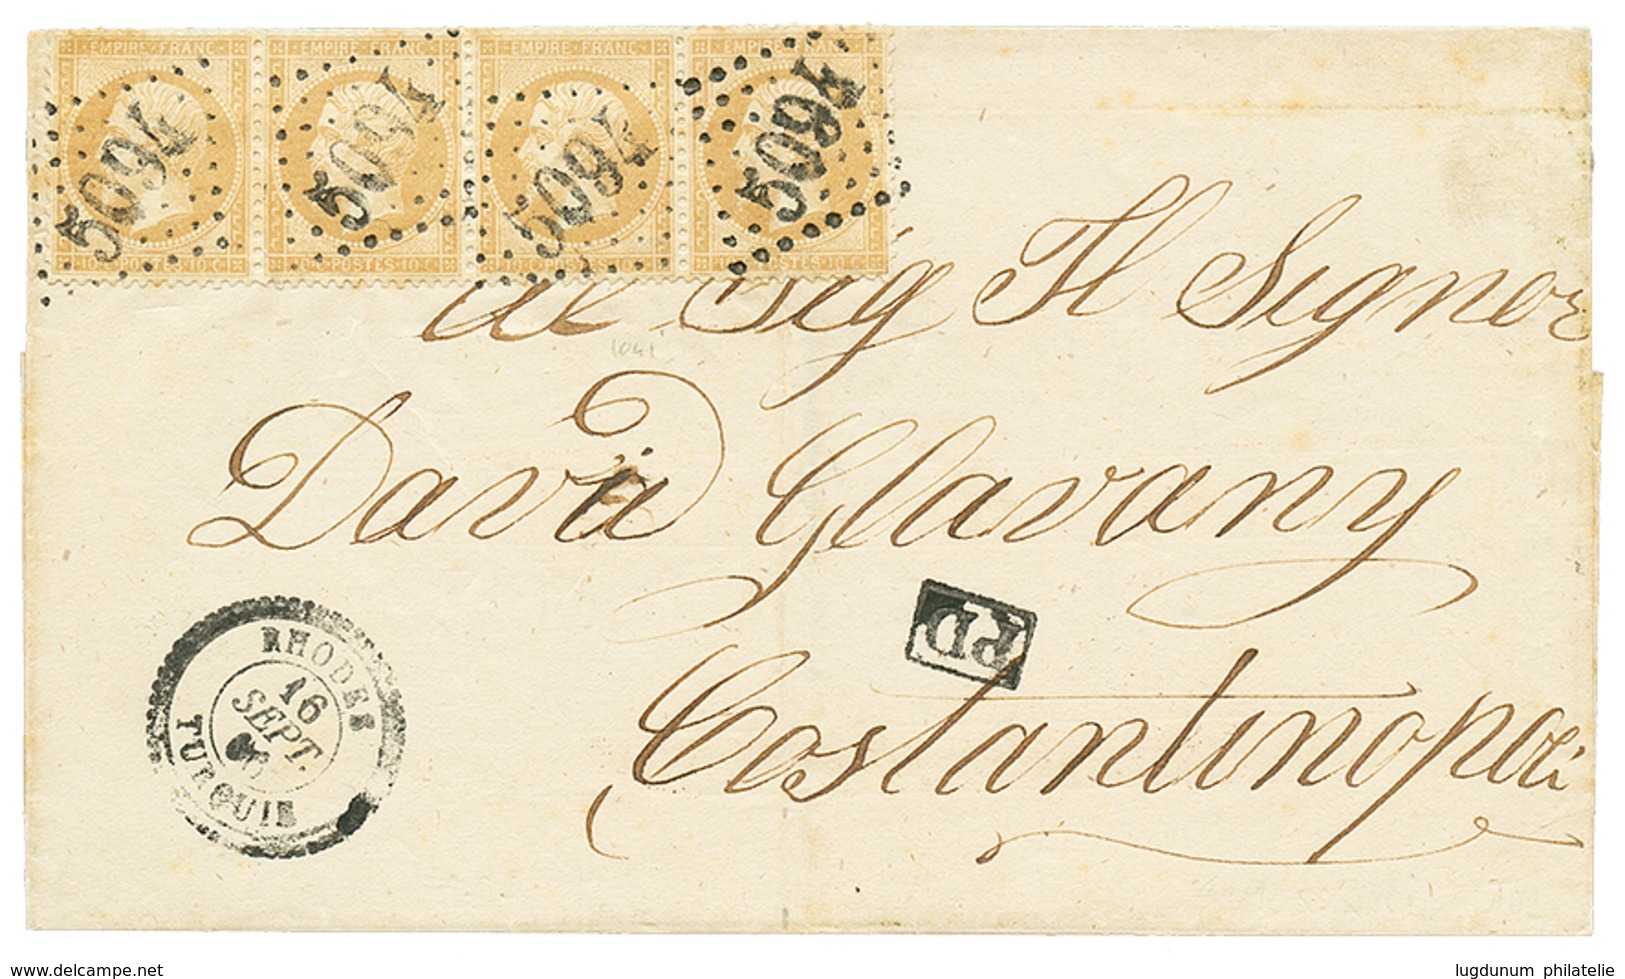 EMPIRE · FRANC · EMPIRE · FRANC · EMPIRE · FRANC · EMPIRE · FRANC ·
5094 5094 5094 5094
10 C POSTES 10 C 10 C POSTES 10 C POSTES 10 C POSTES 10 C
al Sig Il Signor
David Glavany
PD
Costantinopoli
RHODES
16
SEPT.
TURQUIE
www.delcampe.net
lugdunum philatelie